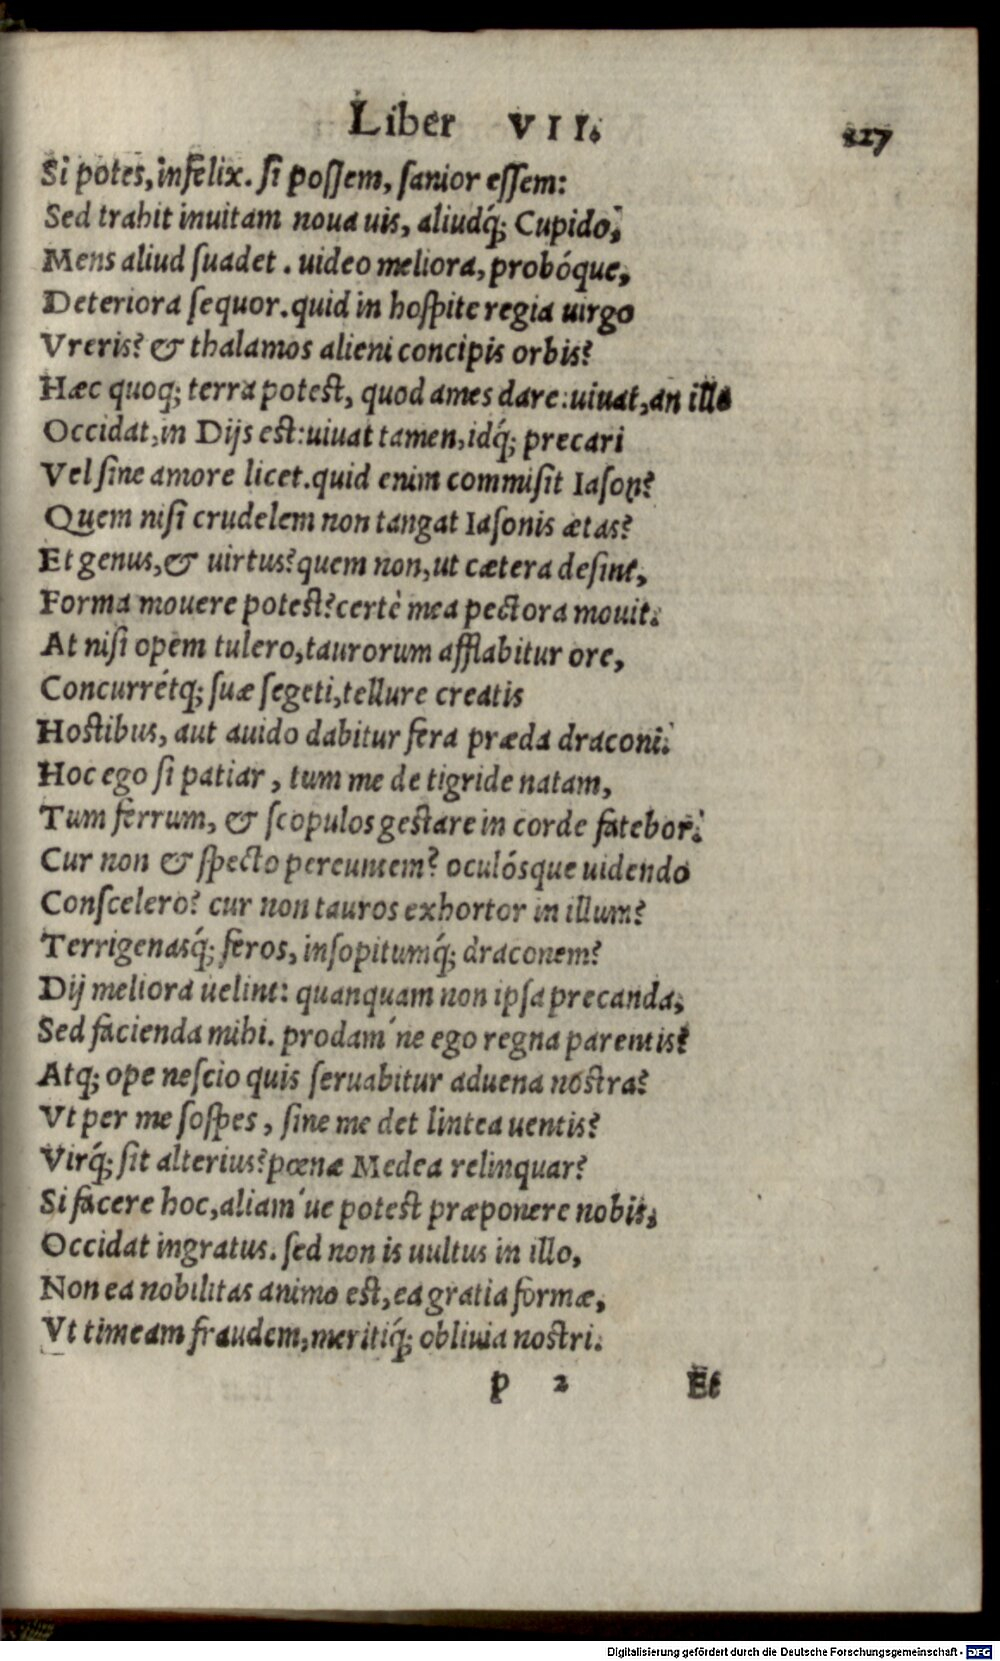 Liber VII. 227
Si potes, infelix. ſi poſſem, ſanior eſſem:
Sed trahit inuitam noua uis, aliudq́; Cupido,
Mens aliud ſuadet. uideo meliora, probóque,
Deteriora ſequor. quid in hoſpite regia uirgo
Vreris? & thalamos alieni concipis orbis?
Hæc quoq; terra poteſt, quod ames dare: uiuat, an ille
Occidat, in Dijs eſt: uiuat tamen, idq́; precari
Vel ſine amore licet. quid enim commiſit Iaſon?
Quem niſi crudelem non tangat Iaſonis ætas?
Et genus, & uirtus? quem non, ut cætera deſint,
Forma mouere poteſt? certè mea pectora mouit.
At niſi opem tulero, taurorum afflabitur ore,
Concurrétq; ſuæ ſegeti, tellure creatis
Hoſtibus, aut auido dabitur fera præda draconi.
Hoc ego ſi patiar, tum me de tigride natam,
Tum ferrum, & ſcopulos geſtare in corde fatebor.
Cur non & ſpecto pereuntem? oculósque uidendo
Conſcelero? cur non tauros exhortor in illum?
Terrigenasq́; feros, inſopitumq́; draconem?
Dij meliora uelint: quanquam non ipſa precanda,
Sed facienda mihi. prodam´ne ego regna parentis?
Atq; ope neſcio quis ſeruabitur aduena noſtra?
Vt per me ſoſpes, ſine me det lintea uentis?
Virq́; ſit alterius? pœnæ Medea relinquar?
Si facere hoc, aliam´ue poteſt præponere nobis,
Occidat ingratus. ſed non is uultus in illo,
Non ea nobilitas animo eſt, ea gratia formæ,
Vt timeam fraudem, meritiq́; obliuia noſtri.
p 2 Et
Digitalisierung gefördert durch die Deutsche Forschungsgemeinschaft - DFG